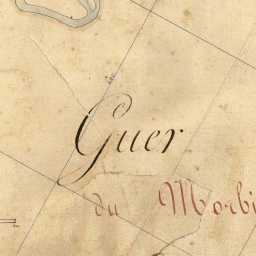 Guer
du Morbi